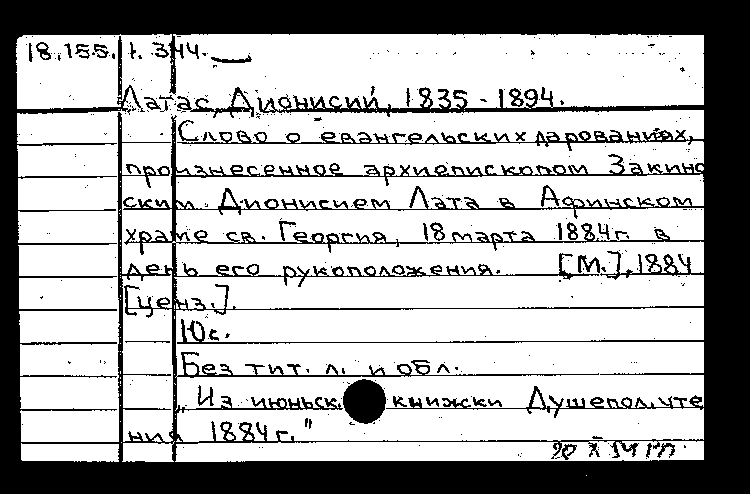 18.155.1.344.
Латас, Дионисий, 1835 - 1894.
Слово о евангельских дарованиях,
произнесенное архиепископом Закинф
ским Дионисием Лата в Афинском
храме св. Георгия, 18 марта 1884г. в
день его рукоположения. [М.], 1884
[ценз.].
10с.
Без тит. л. и обл.
„Из июньск. книжки Душепол. чте
ния 1884г."
20 X 54